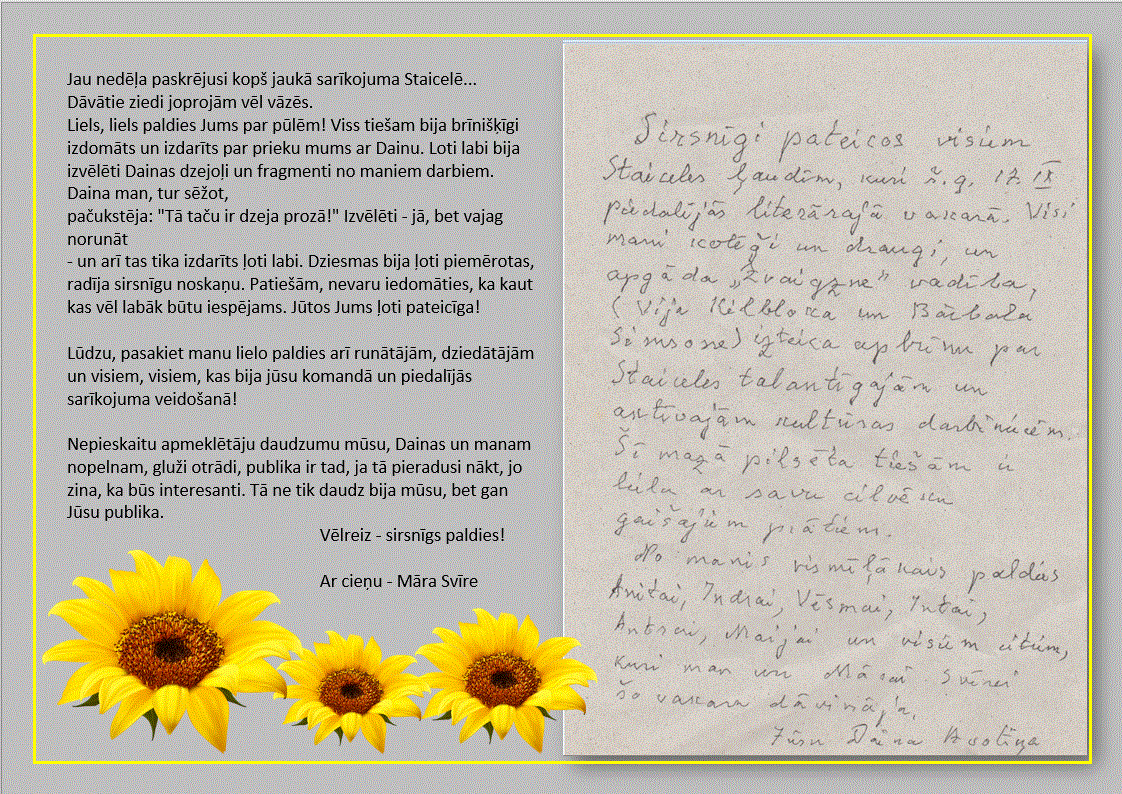 Jau nedēļa paskrējusi kopš jaukā sarīkojuma Staicelē...
Dāvātie ziedi joprojām vēl vāzēs.
Liels, liels paldies Jums par pūlēm! Viss tiešam bija brīnišķīgi
izdomāts un izdarīts par prieku mums ar Dainu. Loti labi bija
izvēlēti Dainas dzejoļi un fragmenti no maniem darbiem.
Daina man, tur sēžot,
pačukstēja: "Tā taču ir dzeja prozā!" Izvēlēti - jā, bet vajag
norunāt
- un arī tas tika izdarīts ļoti labi. Dziesmas bija ļoti piemērotas,
radīja sirsnīgu noskaņu. Patiešām, nevaru iedomāties, ka kaut
kas vēl labāk būtu iespējams. Jūtos Jums ļoti pateicīga!
Lūdzu, pasakiet manu lielo paldies arī runātājām, dziedātājām
un visiem, visiem, kas bija jūsu komandā un piedalījās
sarīkojuma veidošanā!
Nepieskaitu apmeklētāju daudzumu mūsu, Dainas un manam
nopelnam, gluži otrādi, publika ir tad, ja tā pieradusi nākt, jo
zina, ka būs interesanti. Tā ne tik daudz bija mūsu, bet gan
Jūsu publika.
Vēlreiz - sirsnīgs paldies!
Ar cieņu - Māra Svīre
Sirsnīgi pateicos visiem
Staiceles ļaudīm, kuri š.g. 17. IX
piedalījās literārajā vakarā. Visi
mani kolēģi un draugi, un
apgāda „Zvaigzne" vadība,
(Vija Kilbloka un Bārbala
Simsone) izteica apbrīnu par
Staiceles talantīgajām un
aktīvajām kultūras darbiniecēm.
Šī mazā pilsēta tiešām ir
liela ar savu cilvēku
gaišajiem prātiem.
No manis vismīļākais paldies
Anitai, Indrai, Vēsmai, Intai,
Antrai, Maijai un visiem citiem,
kuri man un Mārai Svīrei
šo vakaru dāvināja.
Jūsu Daina Avotiņa